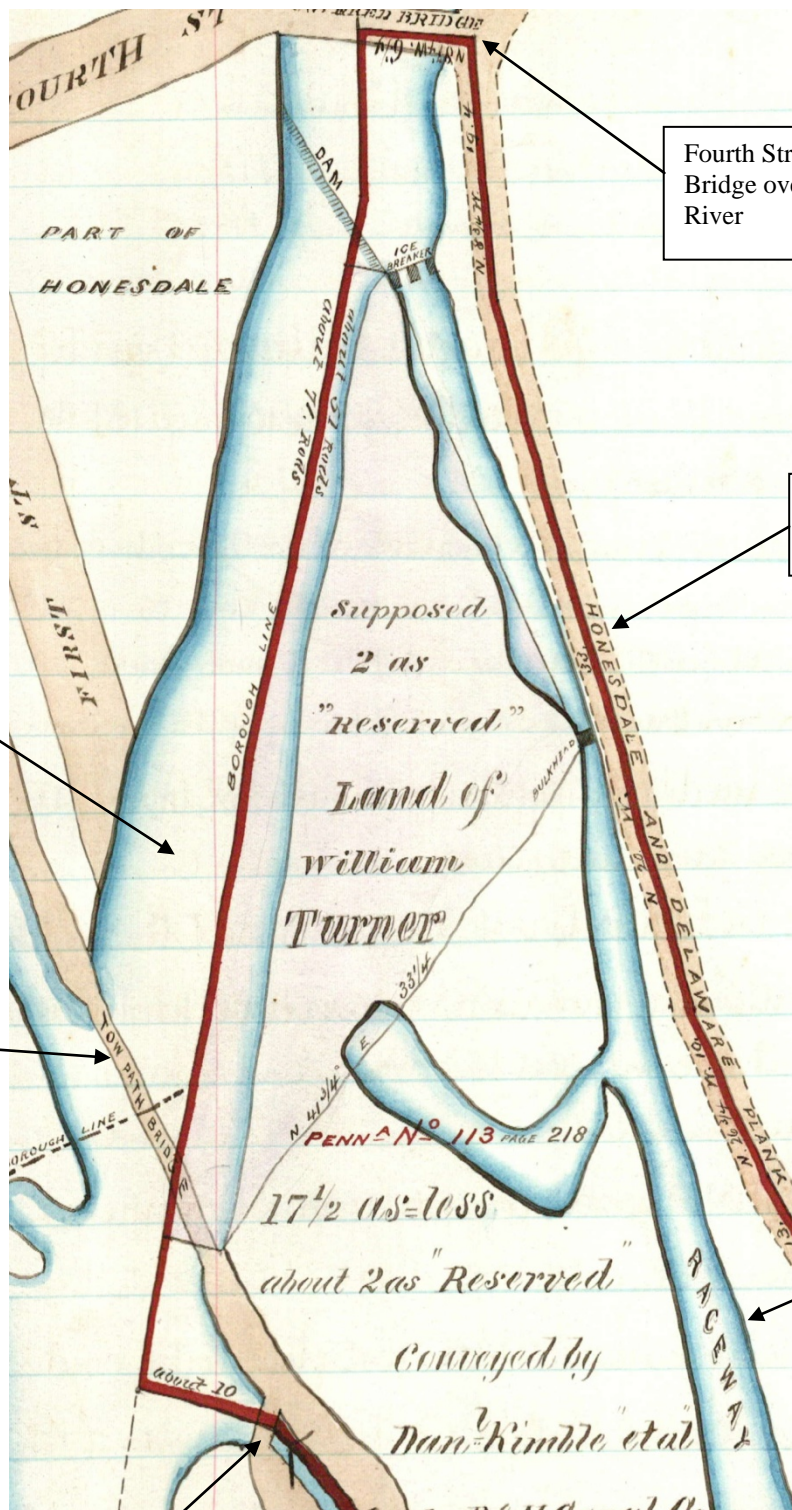 BRIDGE
FOURTH ST
N 87¼ W. 6¼
DAM
ICE
BREAKER
PART OF
HONESDALE
Fourth Str
Bridge ov
River
about 51 Rods
about 71. Rods
BOROUGH LINE
FIRST ST
Supposed
2 as
"Reserved"
Land of
William
Turner
BULKHEAD
HONESDALE AND DELAWARE PLANK
33'
N 41¾° E 33¼
TOW PATH BRIDGE
BOROUGH LINE
PENNA No 113 PAGE 218
17½ as=less
about 2 as "Reserved"
Conveyed by
Danl Kimble "et al"
RACEWAY
about 10